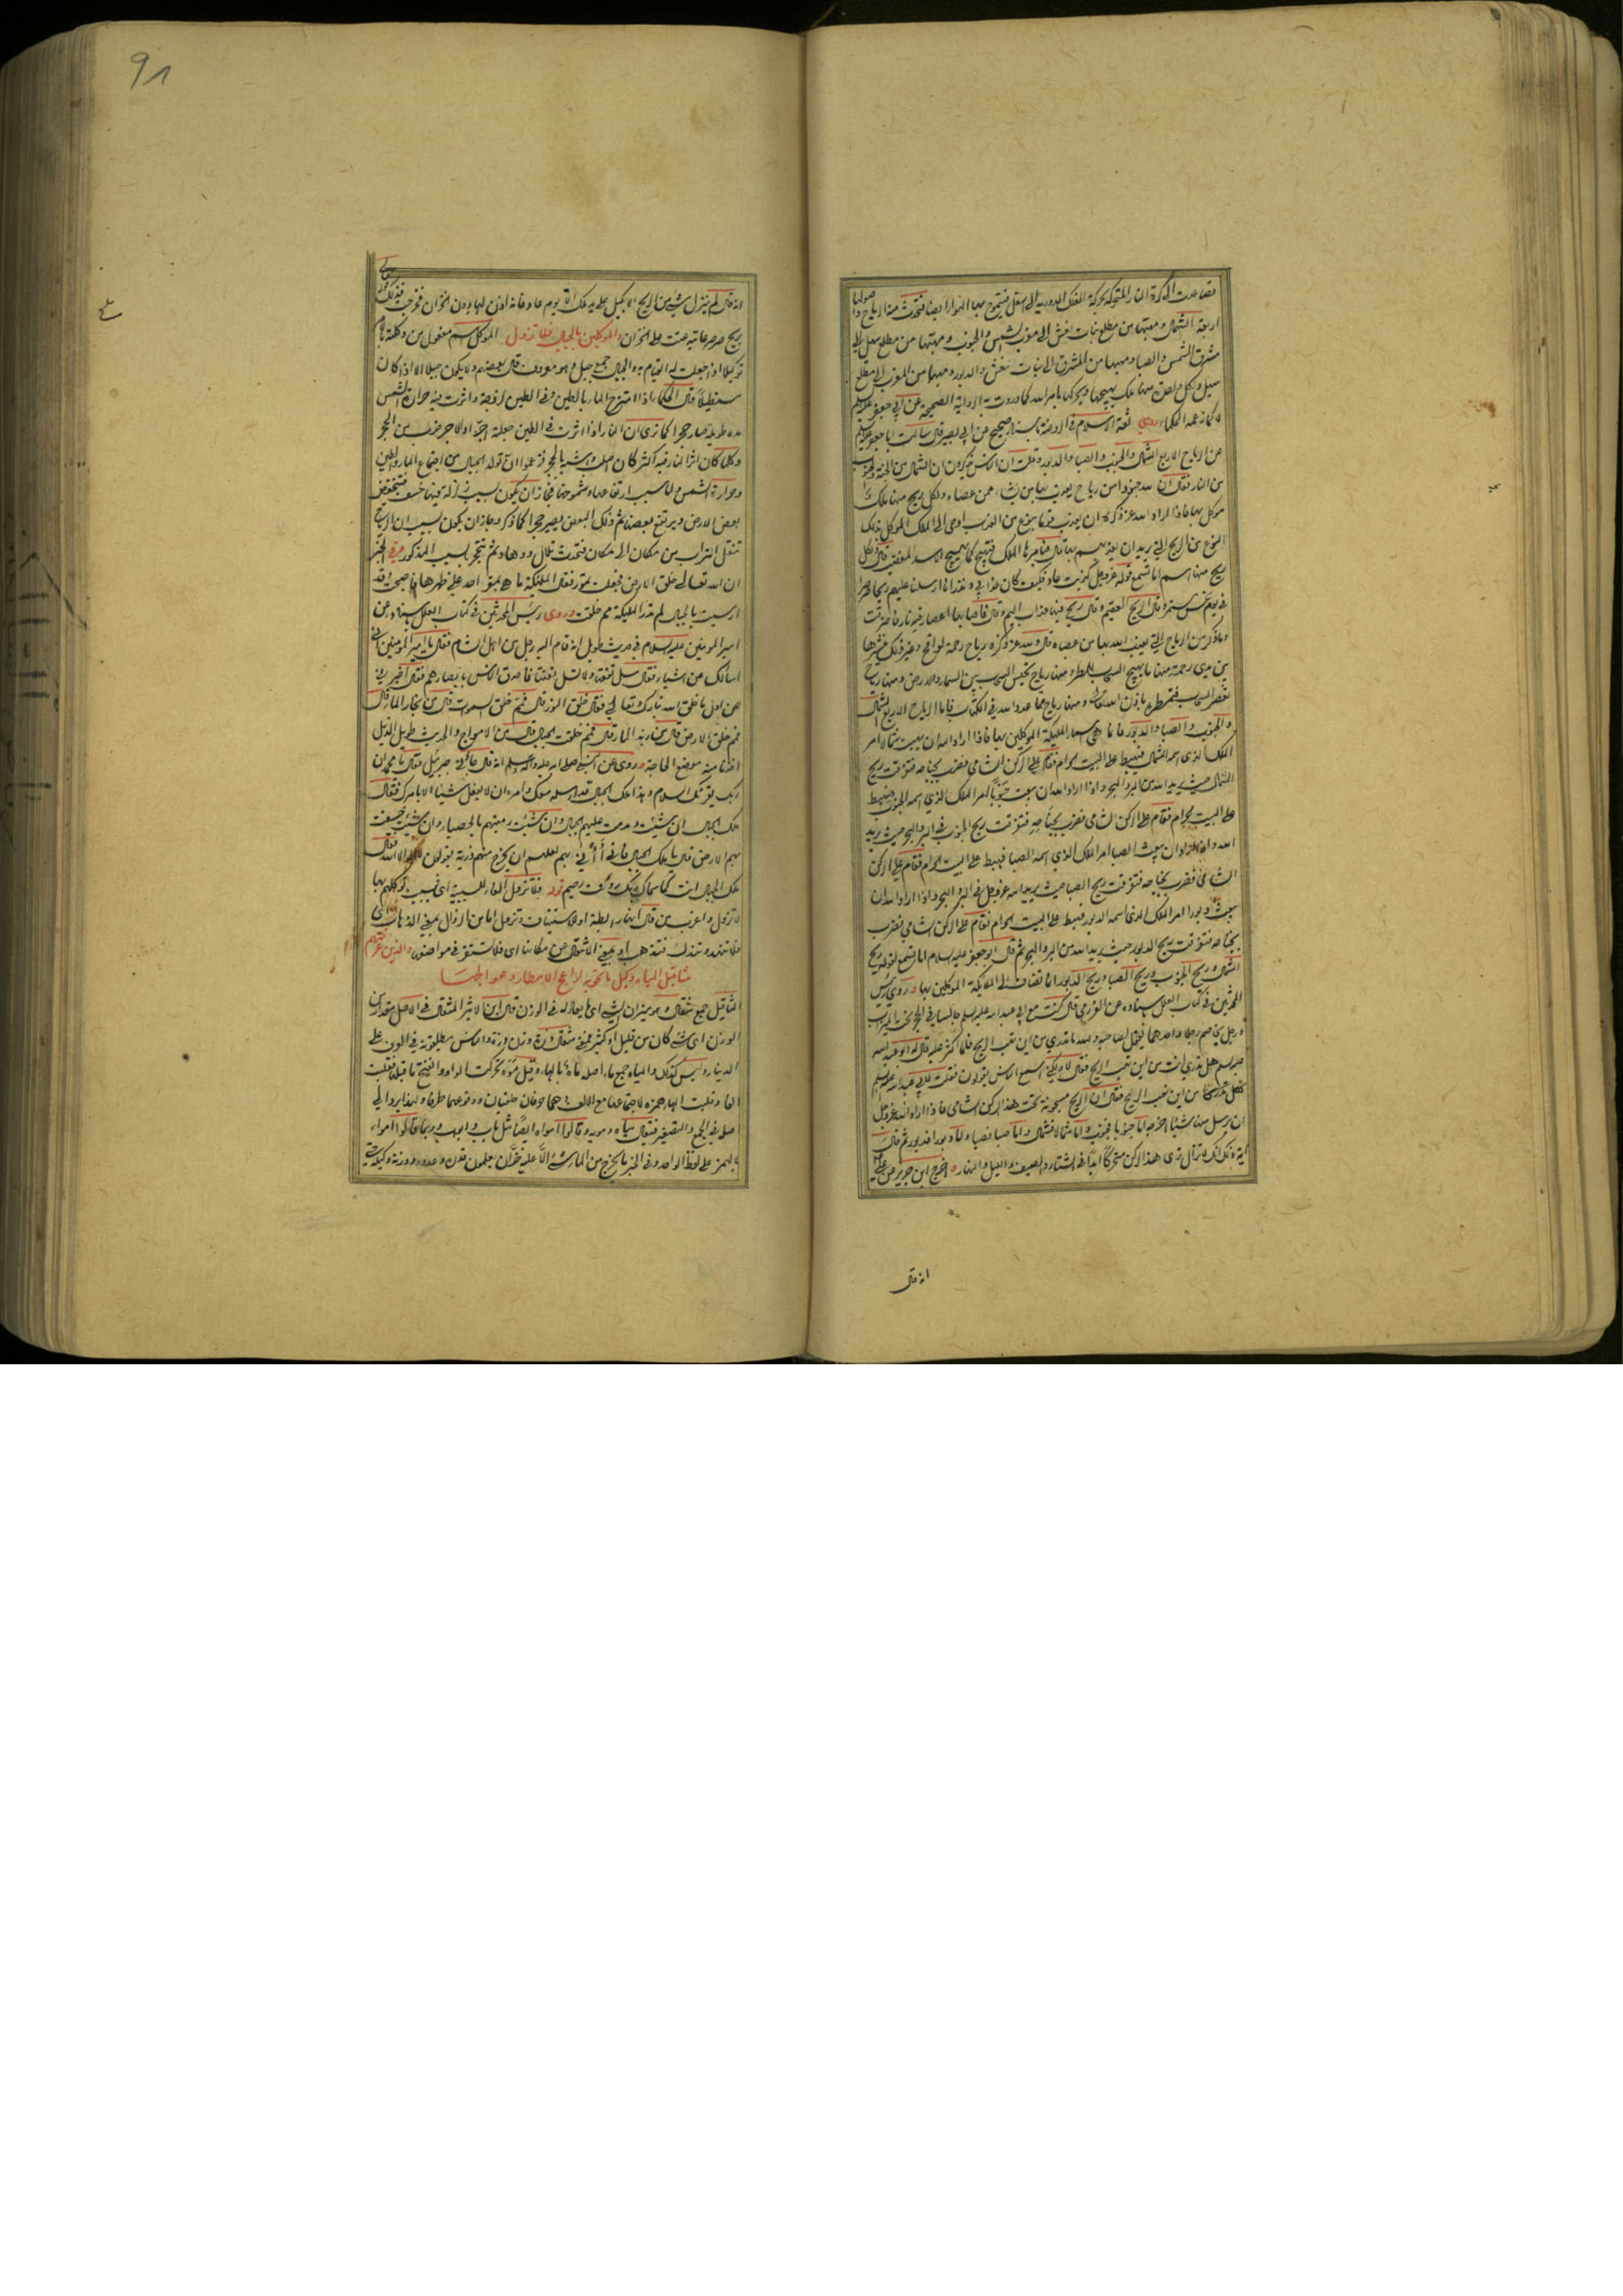 تصاعدت الى كرة النار المتحركة بحركة الفلك الدورية الى اسفل فيتموج بها الهواء ايضا فتحدث منه الرياح واصولها
اربعة الشمال ومهبها من مطلع بنات نعش الى مغرب الشمس والجنوب ومهبها من مطلع سهيل الى
مشرق الشمس والصبا ومهبها من المشرق الى بنات نعش والدبور ومهبها من المغرب الى مطلع
سهيل ولكل واحدة منها ملك يهيجها ويحركها بامر الله كما وردت به الرواية الصحيحة عن ابي جعفر عليه السلم
لا كما زعمه الحكماء روى ثقة الاسلام في الروضة باسناد صحيح عن ابي بصير قال سالت ابا جعفر عليه السلم
عن الرياح الاربع الشمال والجنوب والصبا والدبور وقلت ان الناس يذكرون ان الشمال من الجنة والجنوب
من النار فقال ان لله جنودا من رياح يعذب بها من يشاء ممن عصاه ولكل ريح منها ملك
موكل بها فاذا اراد الله عز ذكره ان يعذب قوما بنوع من العذاب اوحى الى الملك الموكل بذلك
النوع من الريح التي يريد ان يعذبهم بها قال فيامرها الملك فتهيج كما يهيج الاسد المغضب قال ولكل
ريح منها اسم اما تسمع قوله عز وجل كذبت عاد فكيف كان عذابي ونذر انا ارسلنا عليهم ريحا صرصرا
في يوم نحس مستمر وقال الريح العقيم وقال ريح فيها عذاب اليم وقال فاصابها اعصار فيه نار فاحترقت
وما ذكر من الرياح التي يعذب الله بها من عصاه قال ولله عز ذكره رياح رحمة لواقح وغير ذلك ينشرها
بين يدي رحمته منها ما يهيج السحاب للمطر ومنها رياح تحبس السحاب بين السماء والارض ومنها رياح
تعصر السحاب فتمطره باذن الله ومنها رياح مما عدد الله في الكتاب فاما الرياح الاربع الشمال
والجنوب والصبا والدبور فانما هي اسماء الملئكة الموكلين بها فاذا اراد الله ان يهب شمالا امر
الملك الذي اسمه الشمال فيهبط على البيت الحرام فقام على الركن الشامي فضرب بجناحه فتفرقت ريح
الشمال حيث يريد الله من البر والبحر واذا اراد الله ان يبعث جنوبا امر الملك الذي اسمه الجنوب فيهبط
على البيت الحرام فقام على الركن الشامي فضرب بجناحه فتفرقت ريح الجنوب في البر والبحر حيث يريد
الله واذا اراد ان يبعث الصبا امر الملك الذي اسمه الصبا فهبط على البيت الحرام فقام على الركن
الشامي فضرب بجناحه فتفرقت ريح الصبا حيث يريد الله عز وجل في البر والبحر واذا اراد الله ان
يبعث دبورا امر الملك الذي اسمه الدبور فهبط على البيت الحرام فقام على الركن الشامي فضرب
بجناحه فتفرقت ريح الدبور حيث يريد الله من البر والبحر ثم قال ابو جعفر عليه السلام اما تسمع لقوله ريح
الشمال وريح الجنوب وريح الصبا وريح الدبور انما تضاف الى الملائكة الموكلين بها وروى رئيس
المحدثين في كتاب العلل باسناده عن العرزمي قال كنت مع ابي عبد الله عليه السلم جالسا في الحجر تحت الميزاب
ورجل يخاصم رجلا واحدهما يقول لصاحبه والله ما تدري من اين تهب الريح فلما اكثر عليه قال له ابو عبد الله
عليه السلم هل تدري انت من اين تهب الريح فقال لا ولكني اسمع الناس يقولون فقلت لابي عبد الله عليه السلم
من اين تهب الريح فقال ان الريح مسجونة تحت هذا الركن الشامي فاذا اراد الله عز وجل
ان يرسل منها شيئا اخرجه اما جنوبا فجنوب واما شمالا فشمال واما صبا فصبا واما دبورا فدبور ثم قال
آية ذلك انك لا تزال ترى هذا الركن متحركا ابدا في الشتاء والصيف والليل والنهار واخرج ابن جرير عن علي
انه قال
91
انه قال لم ينزل شيء من الريح الا بكيل على يد ملك الا يوم عاد فانه اذن لها دون الخزان فخرجت فذلك قوله تعالى
بريح صرصر عاتية عتت على الخزان والموكلين بالجبال فلا تزول الموكل اسم مفعول من وكلته بالامر
توكيلا اذا جعلت له القيام به والجبال جمع جبل وهو معروف قال بعضهم ولا يكون جبلا الا اذا كان
مستطيلا قال الحكماء اذا امتزج الماء بالطين وفي الطين لزوجة واثرت فيه حرارة الشمس
مدة طويلة صار حجرا كما ترى ان النار اذا اثرت في الطين جعلته اجرا والاجر ضرب من الحجر
وكلما كان اثر النار فيه اكثر كان اصلب واشبه بالحجر فزعموا ان تولد الجبال من اجتماع الماء والطين
وحرارة الشمس واما سبب ارتفاعها وشموخها فجاز ان يكون بسبب زلزلة فيها خسف فينخفض
بعض الارض ويرتفع بعضها ثم ذلك البعض يصير حجرا كما ذكر وجاز ان يكون بسبب ان الرياح
تنقل التراب من مكان الى مكان فتحدث تلال ووهاد ثم تتحجر بالسبب المذكور وفي الخبر
ان الله تعالى خلق الارض فجعلت تمور فقالت الملئكة ما هي بمقر احد على ظهرها فاصبحت وقد
ارسيت بالجبال لم تدر الملئكة مم خلقت وروى رئيس المحدثين في كتاب العلل باسناده عن
امير المؤمنين عليه السلام في حديث طويل انه قام اليه رجل من اهل الشام فقال يا امير المؤمنين اني
اسالك عن اشياء فقال سل تفقها ولا تسل تعنتا فاحدق الناس بابصارهم فقال اخبرني
عن اول ما خلق الله تبارك وتعالى فقال خلق النور قال فمم خلق السموات قال من بخار الماء قال
فمم خلق الارض قال من زبد الماء قال فمم خلقت الجبال قال من الامواج والحديث طويل الذيل
اخذنا منه موضع الحاجة وروى عن النبي صلى الله عليه واله وسلم انه قال جبرئيل فقال يا محمد ان
ربك يقرئك السلام وهذا ملك الجبال قد ارسله معك وامره ان لا يفعل شيئا الا بامرك فقال
ملك الجبال ان شئت دمدمت عليهم الجبال وان شئت رميتهم بالحصباء وان شئت خسفت
بهم الارض قال يا ملك الجبال فاني آنى بهم لعلهم ان يخرج منهم ذرية يقولون لا اله الا الله فقال
ملك الجبال انت كما سماك ربك رؤف رحيم قوله فلا تزول الفاء للسببية اي فبسبب توكلهم بها
لا تزول
فلا تتهدد وتندك فتذهب او بمعنى الانتقال عن مكانها اي فلا تستقر في مواضعها والذين عرفتهم
مثاقيل المياه وكيل ما تحويه لواعج الامطار وعوالجها
المثاقيل جمع مثقال وهو ميزان الشيء اي ما يعادله في الوزن قال ابن الاثير المثقال في الاصل مقدار من
الوزن اي شيء كان من قليل او كثير فمعنى مثقال ذرة وزن ذرة والناس يطلقونه في العرف على
الدينار وليس كذلك والمياه جمع ماء اصله ماه بالهاء وقيل موه تحركت الواو وانفتح ما قبلها فقلبت
الفا وقلبت الهاء همزة لاجتماعها مع الالف وهما حرفان حلقيان ووقوعهما طرفا ولهذا يرد الى
اصله في الجمع والتصغير فيقال مياه ومويه وقالوا امواه ايضا مثل باب وابواب وربما قالوا امواء
بالهمز على لفظ الواحد وفي الخبر ما يخرج من الماء شيء الا عليه خزان يعلمون قدره وعدده ووزنه وكيله حتى